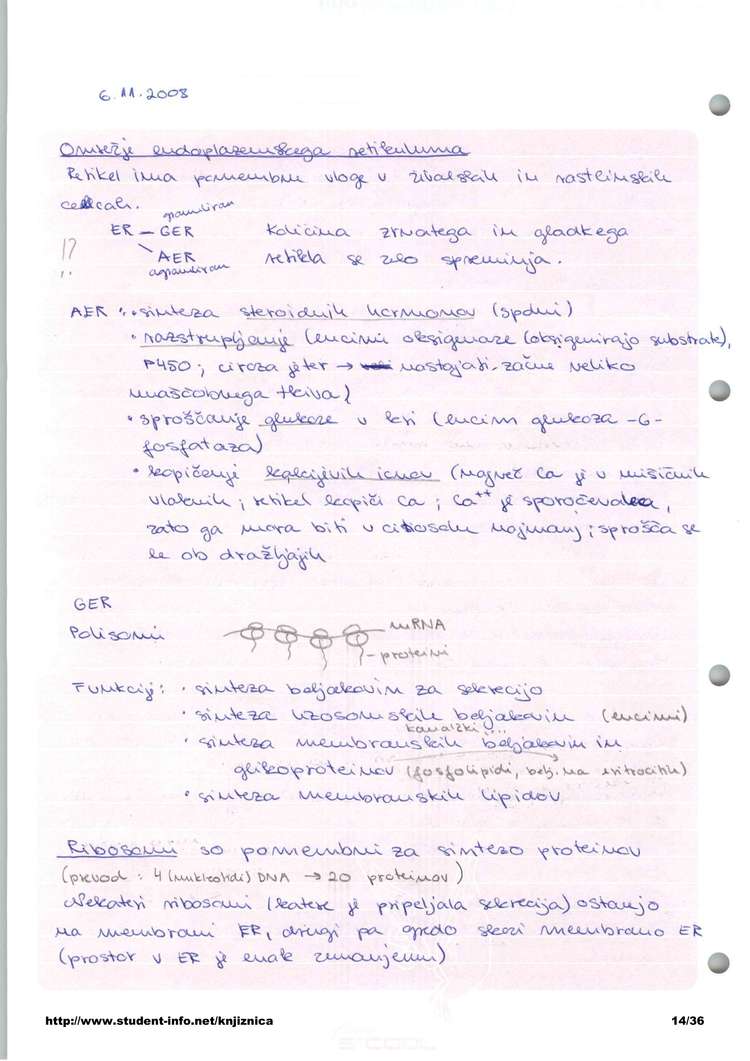 6.11.2008
Omrežje endoplazemskega retikuluma
Retikel ima pomembne vloge v živalskih in rastlinskih
celicah.
granuliran
ER – GER količina zrnatega in gladkega
!?
AER retikla se zelo spreminja.
agranuliran
AER : • sinteza steroidnih hormonov (spolni)
• razstrupljanje (encimi oksigenaze (oksigenirajo substrate),
P450; ciroza jeter → nastajati začne veliko
maščobnega tkiva)
• sproščanje glukoze v kri (encim glukoza -6-
fosfataza)
• kopičenje kalcijevih ionov (največ Ca je v mišičnih
vlaknih; retikel kopiči Ca; Ca++ je sporočevalec,
zato ga mora biti v citosolu najmanj; sprošča se
le ob dražljajih
GER
Polisomi
mRNA
- proteini
Funkcije: • sinteza beljakovin za sekrecijo
• sinteza lizosomskih beljakovin (encimi)
kanalčki ...
• sinteza membranskih beljakovin in
glikoproteinov (fosfolipidi, belj. na eritrocitih)
• sinteza membranskih lipidov
Ribosomi so pomembni za sintezo proteinov
(prevod : 4 (nukleotidi) DNA → 20 proteinov)
Nekateri ribosomi (katere je pripeljala sekrecija) ostanejo
na membrani ER, drugi pa gredo skozi membrano ER
(prostor v ER je enak zunanjemu)
http://www.student-info.net/knjiznica 14/36